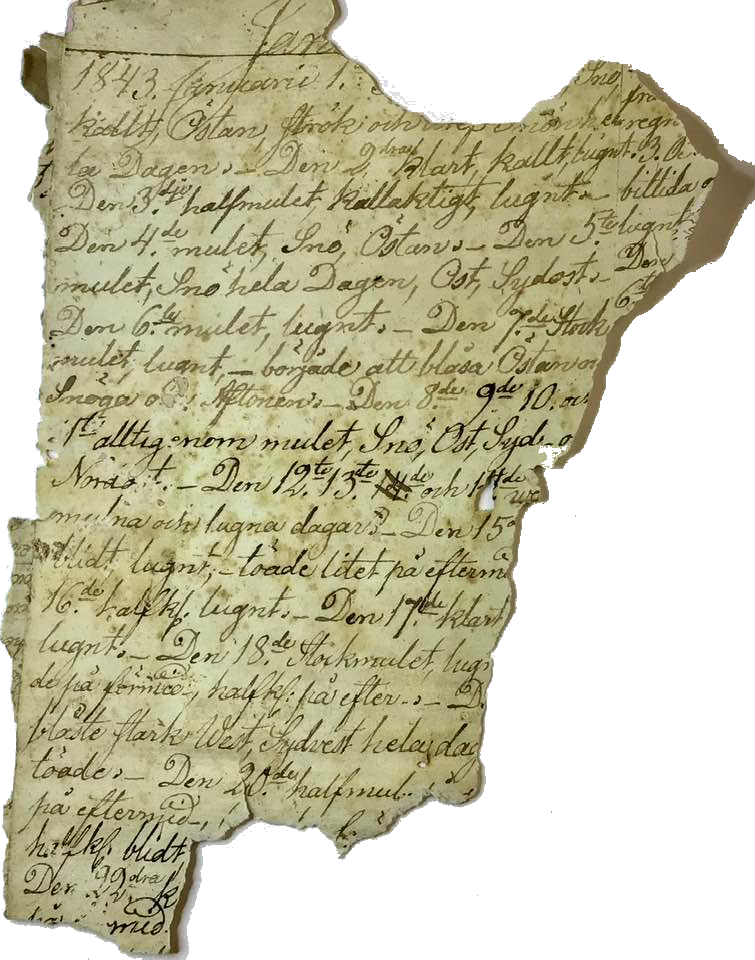 Jan
1843. Januarii 1. Snö
kallt, Östan, strök och snö regn
la Dagen. – Den 2dra klart, kallt, lugnt. 3.
Den 3.die halfmulet, kallaktigt, lugnt. – bittida
Den 4.de mulet, Snö, Östan. – Den 5.te lugnt
mulet, Snö hela Dagen, Ost, Sydost. – Den
Den 6.te mulet, lugnt. – Den 7.de Stock
mulet, lugnt, – började att blåsa Östan
Snöga Aftonen. – Den 8.de 9de 10. oc
1te alltigenom mulet, Snö, Ost, Syd-o
t. – Den 12.te 13.te och 14.de
mulna och lugna dagar. – Den 15
blidt lugnt, – töade litet på efterm
16.de halfkl. lugnt. – Den 17.de klart
lugnt. – Den 18.de Stockmulet, lugn
de på förmid., halfkl. på efter. – D.
blåste stark West, Sydvest hela dag
töade. – Den 20.de halfmul.
på eftermid.,
halfkl. blidt
Den 22.dra k
mid.